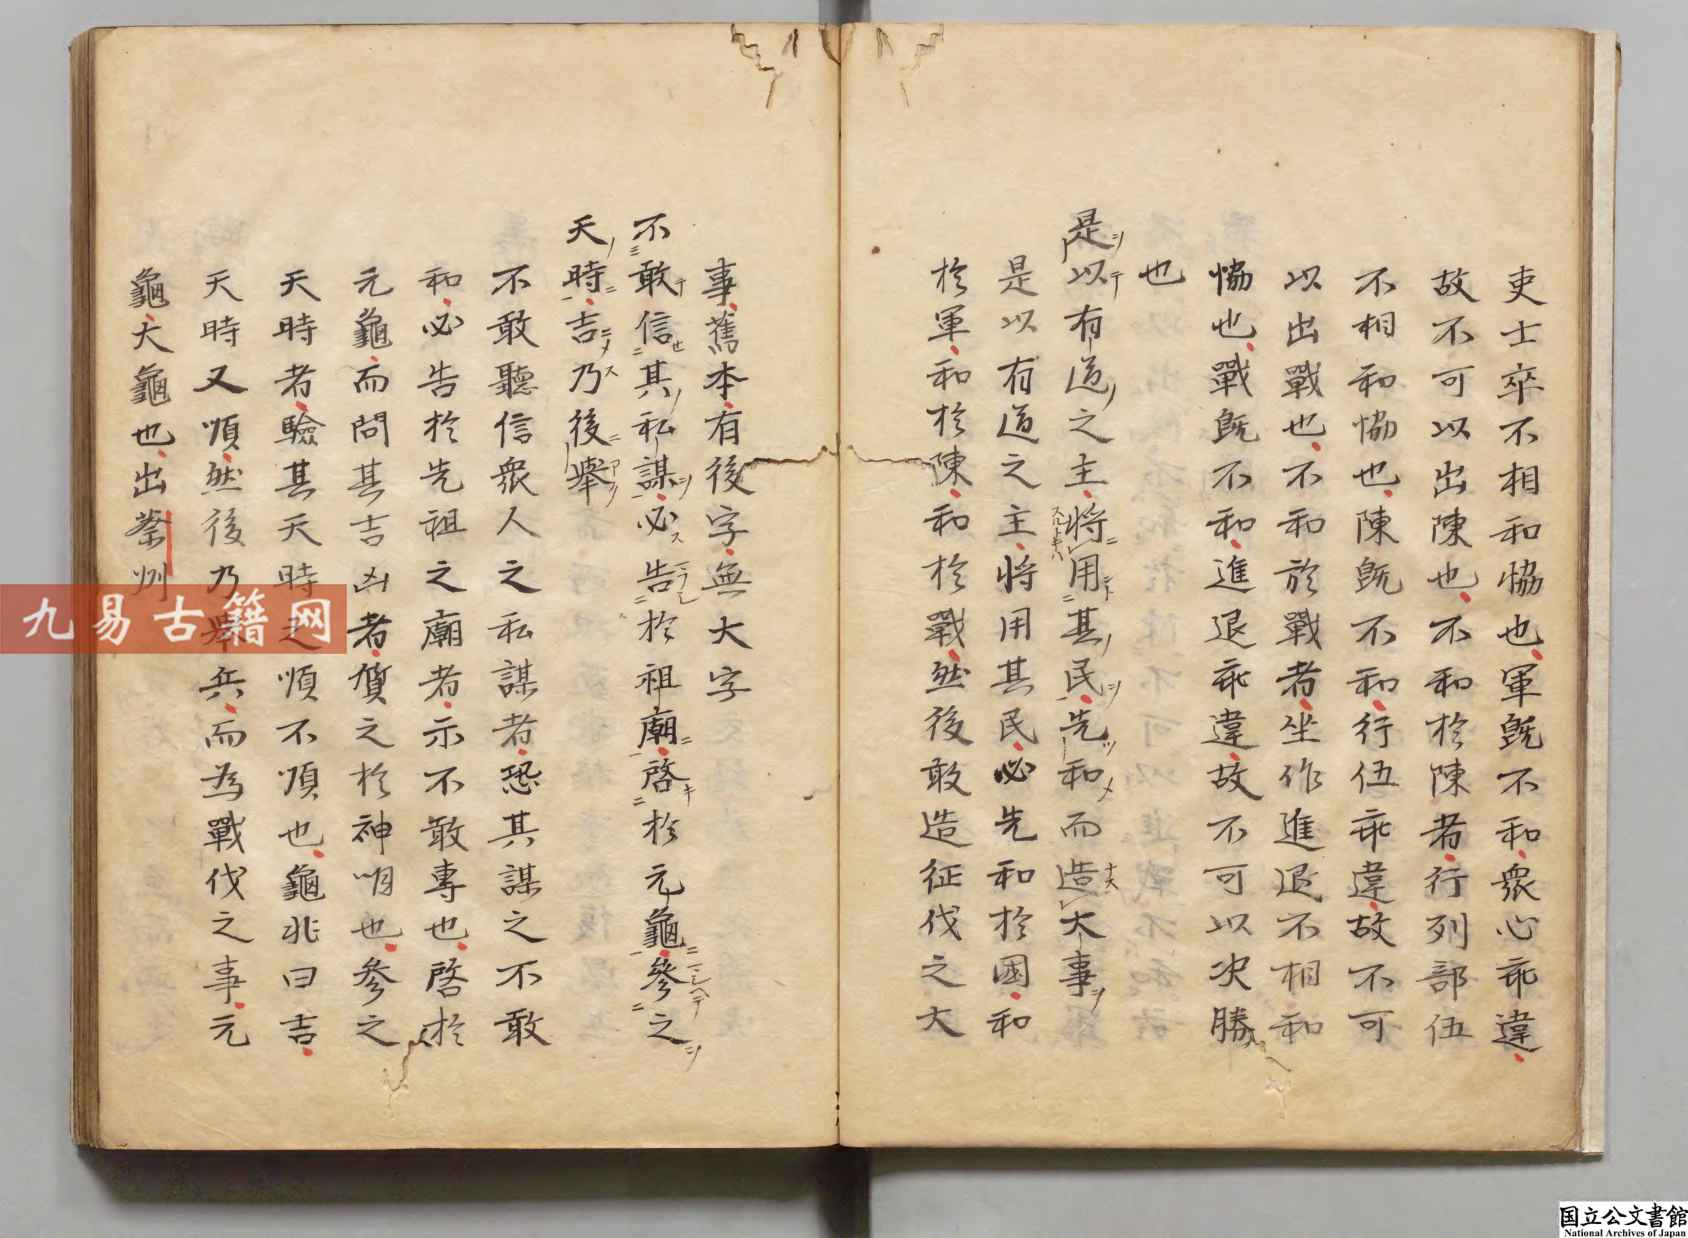 吏士卒不相和恊也軍既不和衆心乖違
故不可以出陳也不和於陳者行列部伍
不相和恊也陳既不和行伍乖違故不可
以出戰也不和於戰者坐作進退不相和
恊也戰既不和進退乖違故不可以决勝
也
是以有道之主將用其民先和而造大事
是以有道之主將用其民必先和於國和
於軍和於陳和於戰然後敢造征伐之大
事舊本有後字無大字
不敢信其私謀必告於祖廟啓於元龜參之
天時吉乃後舉
不敢聽信衆人之私謀者恐其謀之不敢
和必告於先祖之廟者示不敢專也啓於
元龜而問其吉凶者質之於神明也參之
天時者驗其天時之順不順也龜兆曰吉
天時又順然後乃舉兵而為戰伐之事元
龜大龜也出蔡州
九易古籍网
国立公文書館
National Archives of Japan